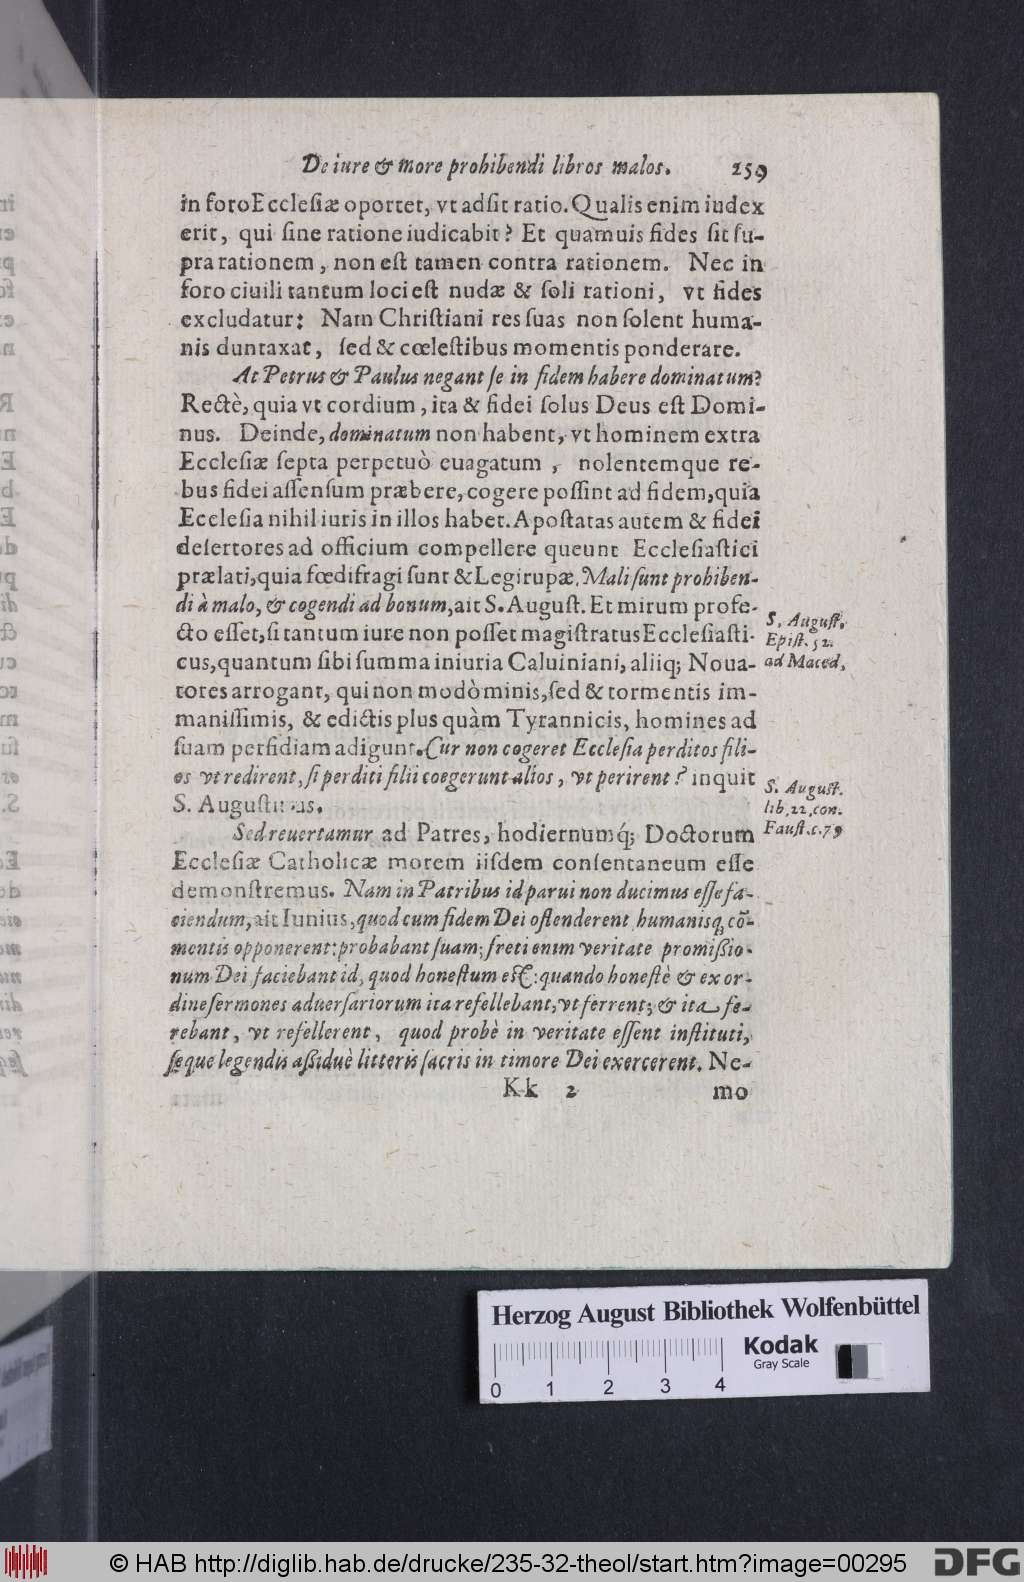 De iure & more prohibendi libros malos. 259
in foro Ecclesiæ oportet, vt adsit ratio. Qualis enim iudex
erit, qui sine ratione iudicabit? Et quamuis fides sit su-
pra rationem, non est tamen contra rationem. Nec in
foro ciuili tantum loci est nudæ & soli rationi, vt fides
excludatur: Nam Christiani res suas non solent huma-
nis duntaxat, sed & cœlestibus momentis ponderare.
At Petrus & Paulus negant se in fidem habere dominatum?
Rectè, quia vt cordium, ita & fidei solus Deus est Domi-
nus. Deinde, dominatum non habent, vt hominem extra
Ecclesiæ septa perpetuò euagatum, nolentemque re-
bus fidei assensum præbere, cogere possint ad fidem, quia
Ecclesia nihil iuris in illos habet. Apostatas autem & fidei
desertores ad officium compellere queunt Ecclesiastici
prælati, quia fœdifragi sunt & Legirupæ. Mali sunt prohiben-
di à malo, & cogendi ad bonum, ait S. August. Et mirum profe-
cto esset, si tantum iure non posset magistratus Ecclesiasti-
cus, quantum sibi summa iniuria Caluiniani, aliiq; Noua-
tores arrogant, qui non modò minis, sed & tormentis im-
manissimis, & edictis plus quàm Tyrannicis, homines ad
suam perfidiam adigunt. Cur non cogeret Ecclesia perditos fili-
os vt redirent, si perditi filii coegerunt alios, vt perirent? inquit
S. Augustinus.
S. August.
Epist. 52.
ad Maced,
S. August.
lib. 22, con.
Faust. c. 79
Sed reuertamur ad Patres, hodiernumq́; Doctorum
Ecclesiæ Catholicæ morem iisdem consentaneum esse
demonstremus. Nam in Patribus id parui non ducimus esse fa-
ciendum, ait Iunius, quod cum fidem Dei ostenderent humanisq; cõ-
mentis opponerent: probabant suam; freti enim veritate promißio-
num Dei faciebant id, quod honestum est: quando honestè & ex or-
dine sermones aduersariorum ita refellebant, vt ferrent; & ita fe-
rebant, vt refellerent, quod probè in veritate essent instituti,
seque legendis aßiduè litteris sacris in timore Dei exercerent. Ne-
Kk 2 mo
Herzog August Bibliothek Wolfenbüttel
Kodak
Gray Scale
0 1 2 3 4
© HAB http://diglib.hab.de/drucke/235-32-theol/start.htm?image=00295
DFG